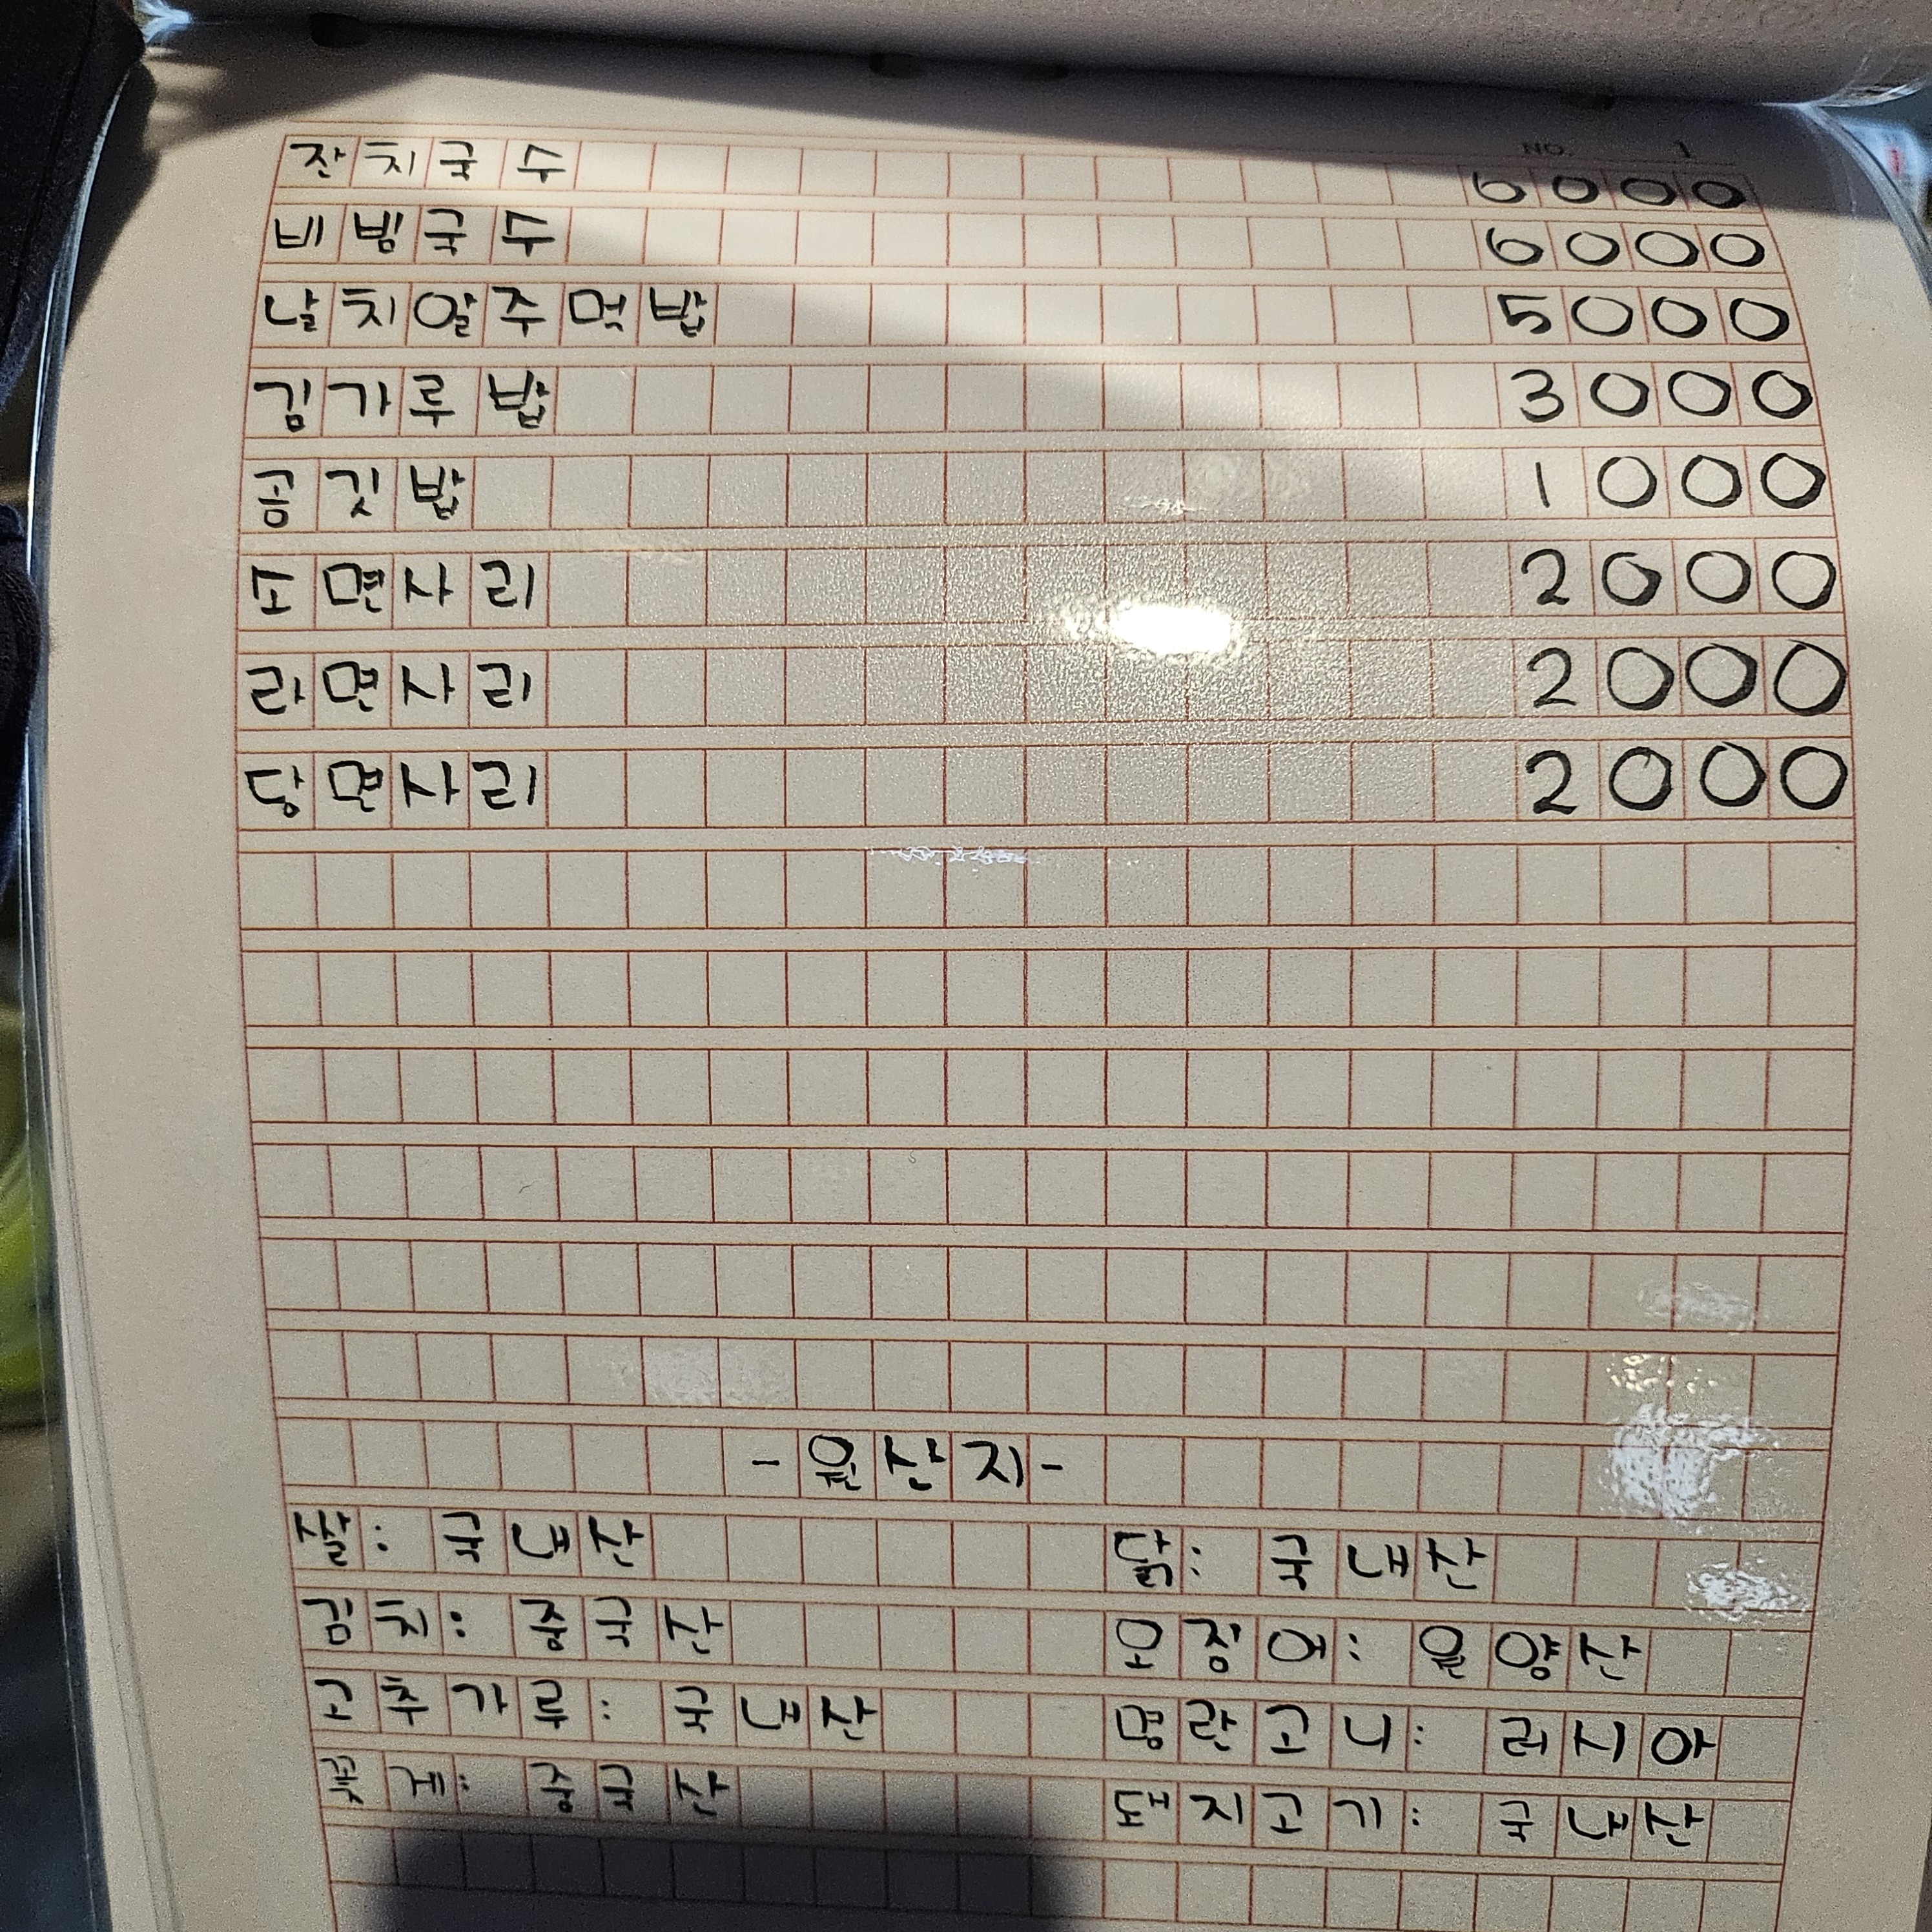 NO. 1
잔치국수 6000
비빔국수 6000
날치알주먹밥 5000
김가루밥 3000
공깃밥 1000
소면사리 2000
라면사리 2000
당면사리 2000
-원산지-
쌀: 국내산 닭: 국내산
김치: 중국산 오징어: 원양산
고추가루: 국내산 명란고니: 러시아
꽃게: 중국산 돼지고기: 국내산